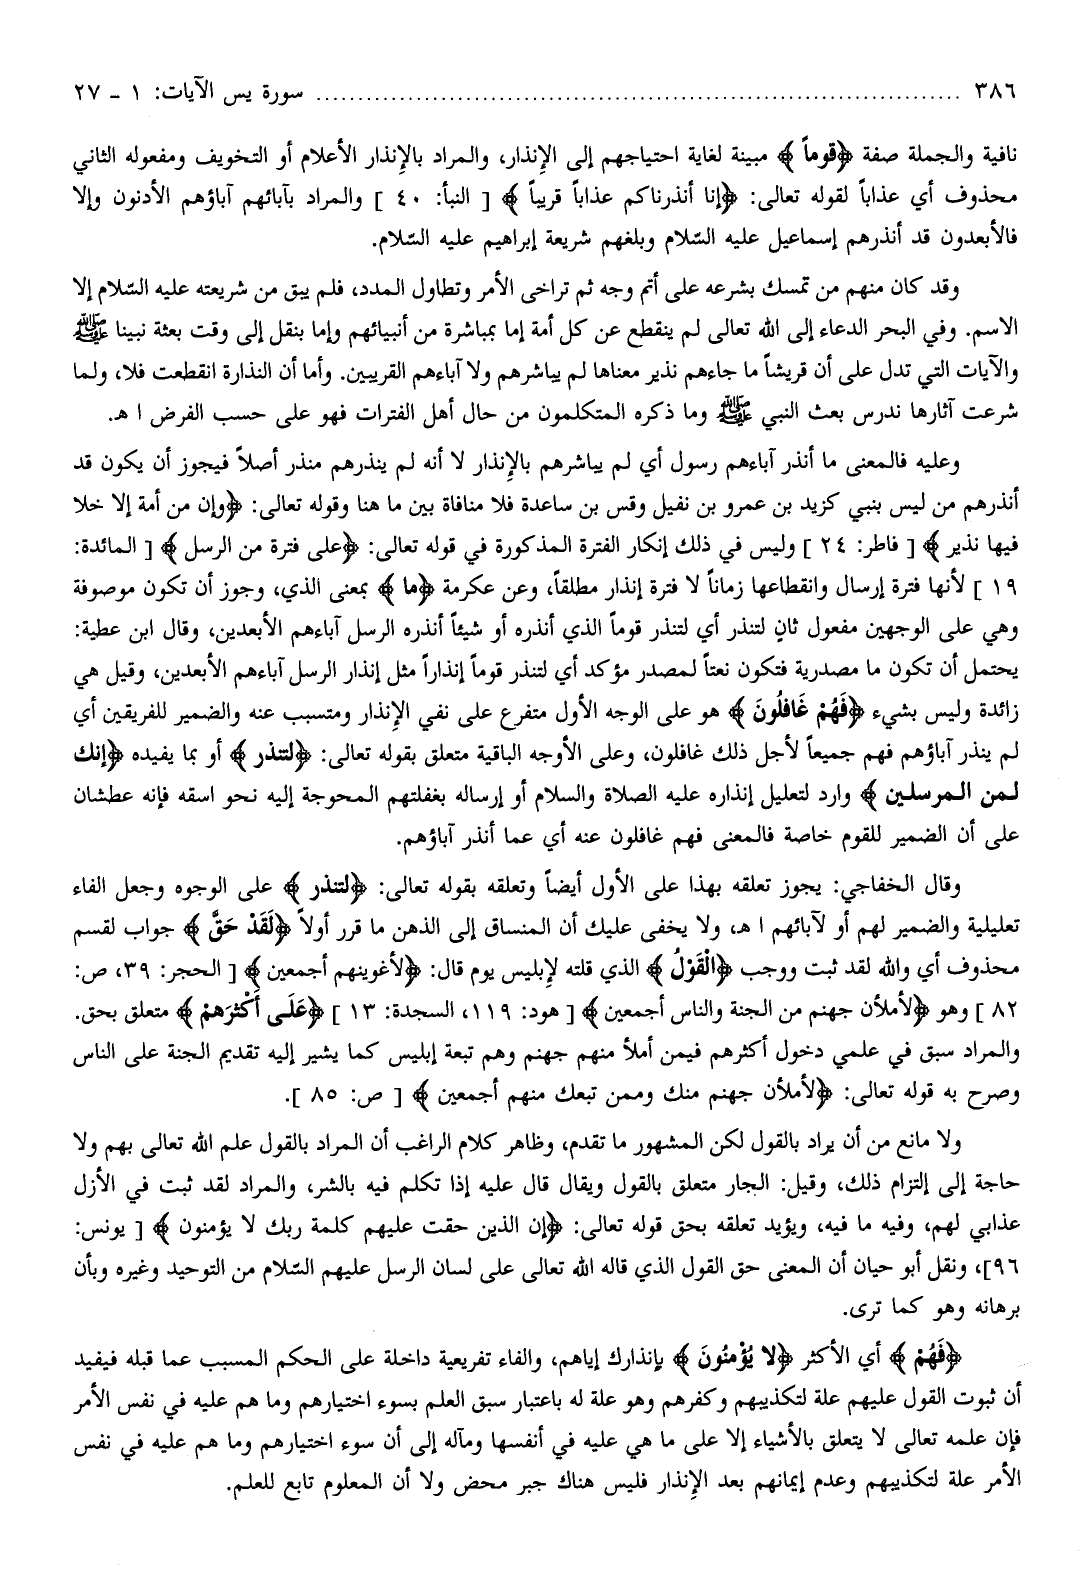 ٣٨٦ ........................................................................ سورة يس الآيات: ١ ـ ٢٧
نافية والجملة صفة ﴿قوماً﴾ مبينة لغاية احتياجهم إلى الإنذار، والمراد بالإنذار الأعلام أو التخويف ومفعوله الثاني
محذوف أي عذاباً لقوله تعالى: ﴿إنا أنذرناكم عذاباً قريباً﴾ [ النبأ: ٤٠ ] والمراد بآبائهم آباؤهم الأدنون وإلا
فالأبعدون قد أنذرهم إسماعيل عليه السّلام وبلغهم شريعة إبراهيم عليه السّلام.
وقد كان منهم من تمسك بشرعه على أتم وجه ثم تراخى الأمر وتطاول المدد، فلم يبق من شريعته عليه السّلام إلا
الاسم. وفي البحر الدعاء إلى الله تعالى لم ينقطع عن كل أمة إما بمباشرة من أنبيائهم وإما بنقل إلى وقت بعثة نبينا ﷺ
والآيات التي تدل على أن قريشاً ما جاءهم نذير معناها لم يباشرهم ولا آباءهم القريبين. وأما أن النذارة انقطعت فلا، ولما
شرعت آثارها ندرس بعث النبي ﷺ وما ذكره المتكلمون من حال أهل الفترات فهو على حسب الفرض ا هـ.
وعليه فالمعنى ما أنذر آباءهم رسول أي لم يباشرهم بالإنذار لا أنه لم ينذرهم منذر أصلاً فيجوز أن يكون قد
أنذرهم من ليس بنبي كزيد بن عمرو بن نفيل وقس بن ساعدة فلا منافاة بين ما هنا وقوله تعالى: ﴿وإن من أمة إلا خلا
فيها نذير﴾ [ فاطر: ٢٤ ] وليس في ذلك إنكار الفترة المذكورة في قوله تعالى: ﴿على فترة من الرسل﴾ [ المائدة:
١٩ ] لأنها فترة إرسال وانقطاعها زماناً لا فترة إنذار مطلقاً، وعن عكرمة ﴿ما﴾ بمعنى الذي، وجوز أن تكون موصوفة
وهي على الوجهين مفعول ثانٍ لتنذر أي لتنذر قوماً الذي أنذره أو شيئاً أنذره الرسل آباءهم الأبعدين، وقال ابن عطية:
يحتمل أن تكون ما مصدرية فتكون نعتاً لمصدر مؤكد أي لتنذر قوماً إنذاراً مثل إنذار الرسل آباءهم الأبعدين، وقيل هي
زائدة وليس بشيء ﴿فَهُمْ غَافلُونَ﴾ هو على الوجه الأول متفرع على نفي الإنذار ومتسبب عنه والضمير للفريقين أي
لم ينذر آباؤهم فهم جميعاً لأجل ذلك غافلون، وعلى الأوجه الباقية متعلق بقوله تعالى: ﴿لتنذر﴾ أو بما يفيده ﴿إنك
لمن المرسلين﴾ وارد لتعليل إنذاره عليه الصلاة والسلام أو إرساله بغفلتهم المحوجة إليه نحو اسقه فإنه عطشان
على أن الضمير للقوم خاصة فالمعنى فهم غافلون عنه أي عما أنذر آباؤهم.
وقال الخفاجي: يجوز تعلقه بهذا على الأول أيضاً وتعلقه بقوله تعالى: ﴿لتنذر﴾ على الوجوه وجعل الفاء
تعليلية والضمير لهم أو لآبائهم ا هـ، ولا يخفى عليك أن المنساق إلى الذهن ما قرر أولاً ﴿لَقَدْ حَقَّ﴾ جواب لقسم
محذوف أي والله لقد ثبت ووجب ﴿الْقَوْلُ﴾ الذي قلته لإبليس يوم قال: ﴿لأغوينهم أجمعين﴾ [ الحجر: ٣٩، ص:
٨٢ ] وهو ﴿لأملأن جهنم من الجنة والناس أجمعين﴾ [ هود: ١١٩، السجدة: ١٣ ] ﴿عَلَى أَكْثَرَهمْ﴾ متعلق بحق.
والمراد سبق في علمي دخول أكثرهم فيمن أملأ منهم جهنم وهم تبعة إبليس كما يشير إليه تقديم الجنة على الناس
وصرح به قوله تعالى: ﴿لأملأن جهنم منك وممن تبعك منهم أجمعين﴾ [ ص: ٨٥ ].
ولا مانع من أن يراد بالقول لكن المشهور ما تقدم، وظاهر كلام الراغب أن المراد بالقول علم الله تعالى بهم ولا
حاجة إلى إلتزام ذلك، وقيل: الجار متعلق بالقول ويقال قال عليه إذا تكلم فيه بالشر، والمراد لقد ثبت في الأزل
عذابي لهم، وفيه ما فيه، ويؤيد تعلقه بحق قوله تعالى: ﴿إن الذين حقت عليهم كلمة ربك لا يؤمنون﴾ [ يونس:
٩٦]، ونقل أبو حيان أن المعنى حق القول الذي قاله الله تعالى على لسان الرسل عليهم السّلام من التوحيد وغيره وبأن
برهانه وهو كما ترى.
﴿فَهُمْ﴾ أي الأكثر ﴿لا يُؤْمنُونَ﴾ بإنذارك إياهم، والفاء تفريعية داخلة على الحكم المسبب عما قبله فيفيد
أن ثبوت القول عليهم علة لتكذيبهم وكفرهم وهو علة له باعتبار سبق العلم بسوء اختيارهم وما هم عليه في نفس الأمر
فإن علمه تعالى لا يتعلق بالأشياء إلا على ما هي عليه في أنفسها ومآله إلى أن سوء اختيارهم وما هم عليه في نفس
الأمر علة لتكذيبهم وعدم إيمانهم بعد الإنذار فليس هناك جبر محض ولا أن المعلوم تابع للعلم.